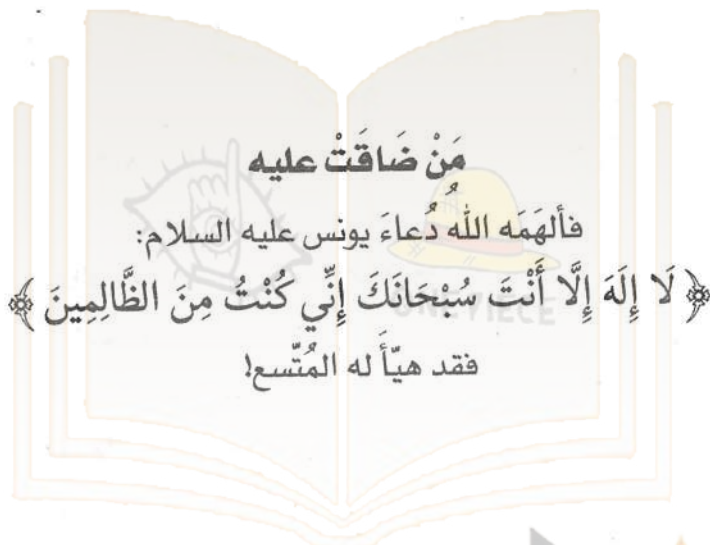 مَنْ ضَاقَتْ عليه
فألهَمَه اللهُ دُعاءَ يونس عليه السلام:
﴿ لَا إِلَهَ إِلَّا أَنْتَ سُبْحَانَكَ إِنِّي كُنْتُ مِنَ الظَّالِمِينَ ﴾
ONE PIECE
فقد هيّأَ له المُتَّسع!